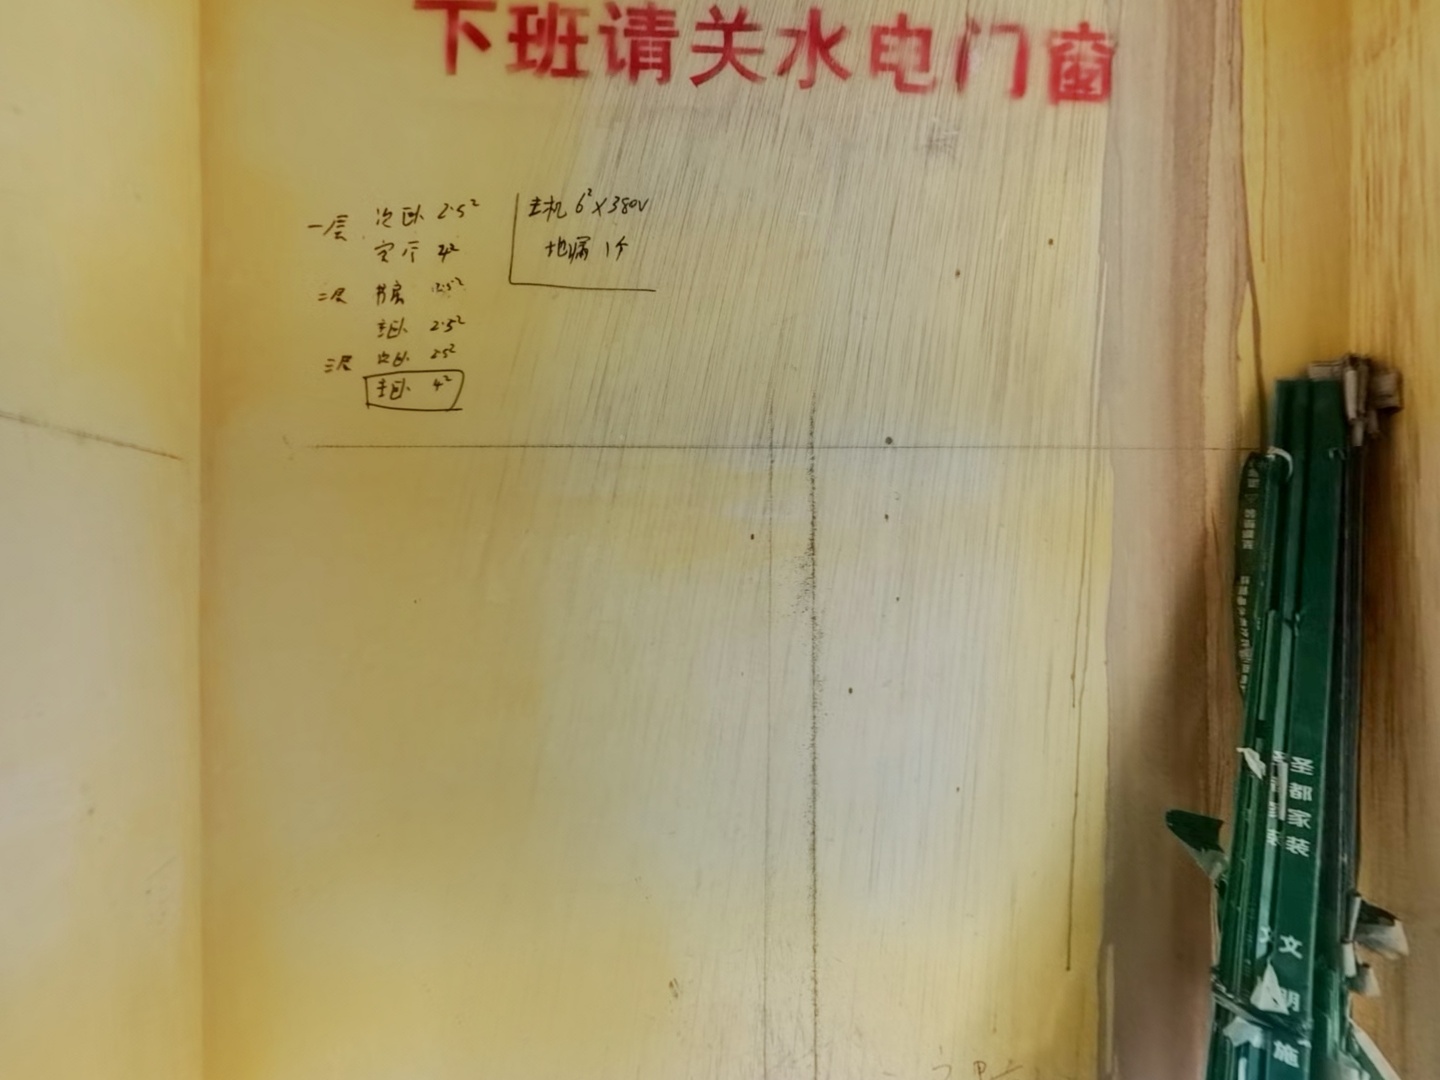 下班请关水电门窗
一层 次卧 2.5²
客厅 4²
二层 书房 2.5²
主卧 2.5²
三层 次卧 2.5²
主卧 4²
主机 6²×380V
地漏 1个
圣都家装
文明施